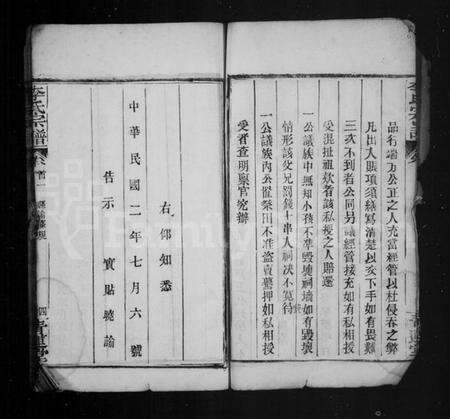 品行端方公正之人充當經管以杜侵吞之弊
凡出入賬項須繕寫清楚以交下手如有畏難
三次不到者公同另議經管接充如有私相授
受混扯瓶欺者該私授之人賠還
一公議族中無知小孩不準毀壞祠墻如有毀壞
情形該父兄罰錢十串入祠决不寬待
一公議族內公置祭田不准盜賣輕押如有私相授
受者查明稟官究辦
右仰知悉
中華民國二年七月六號
告示 實貼曉諭
李氏宗譜
卷首二
四